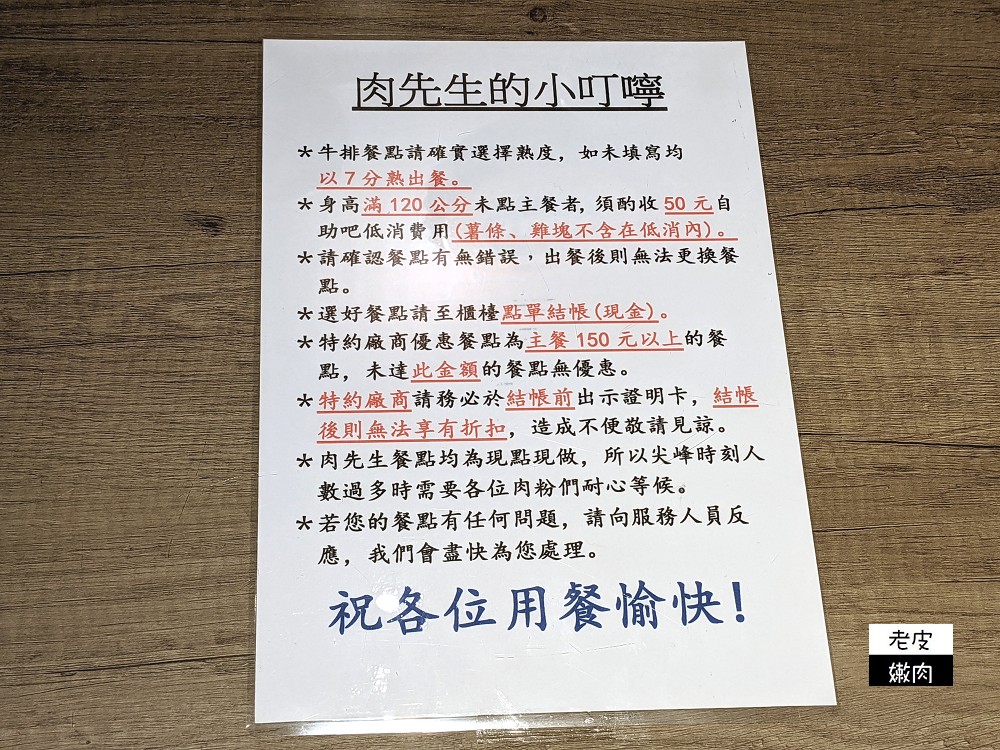 肉先生的小叮嚀
＊牛排餐點請確實選擇熟度，如未填寫均
以7分熟出餐。
＊身高滿120公分未點主餐者，須酌收50元自
助吧低消費用(薯條、雞塊不含在低消內)。
＊請確認餐點有無錯誤，出餐後則無法更換餐
點。
＊選好餐點請至櫃檯點單結帳(現金)。
＊特約廠商優惠餐點為主餐150元以上的餐
點，未達此金額的餐點無優惠。
＊特約廠商請務必於結帳前出示證明卡，結帳
後則無法享有折扣，造成不便敬請見諒。
＊肉先生餐點均為現點現做，所以尖峰時刻人
數過多時需要各位肉粉們耐心等候。
＊若您的餐點有任何問題，請向服務人員反
應，我們會盡快為您處理。
祝各位用餐愉快！
老皮
嫩肉